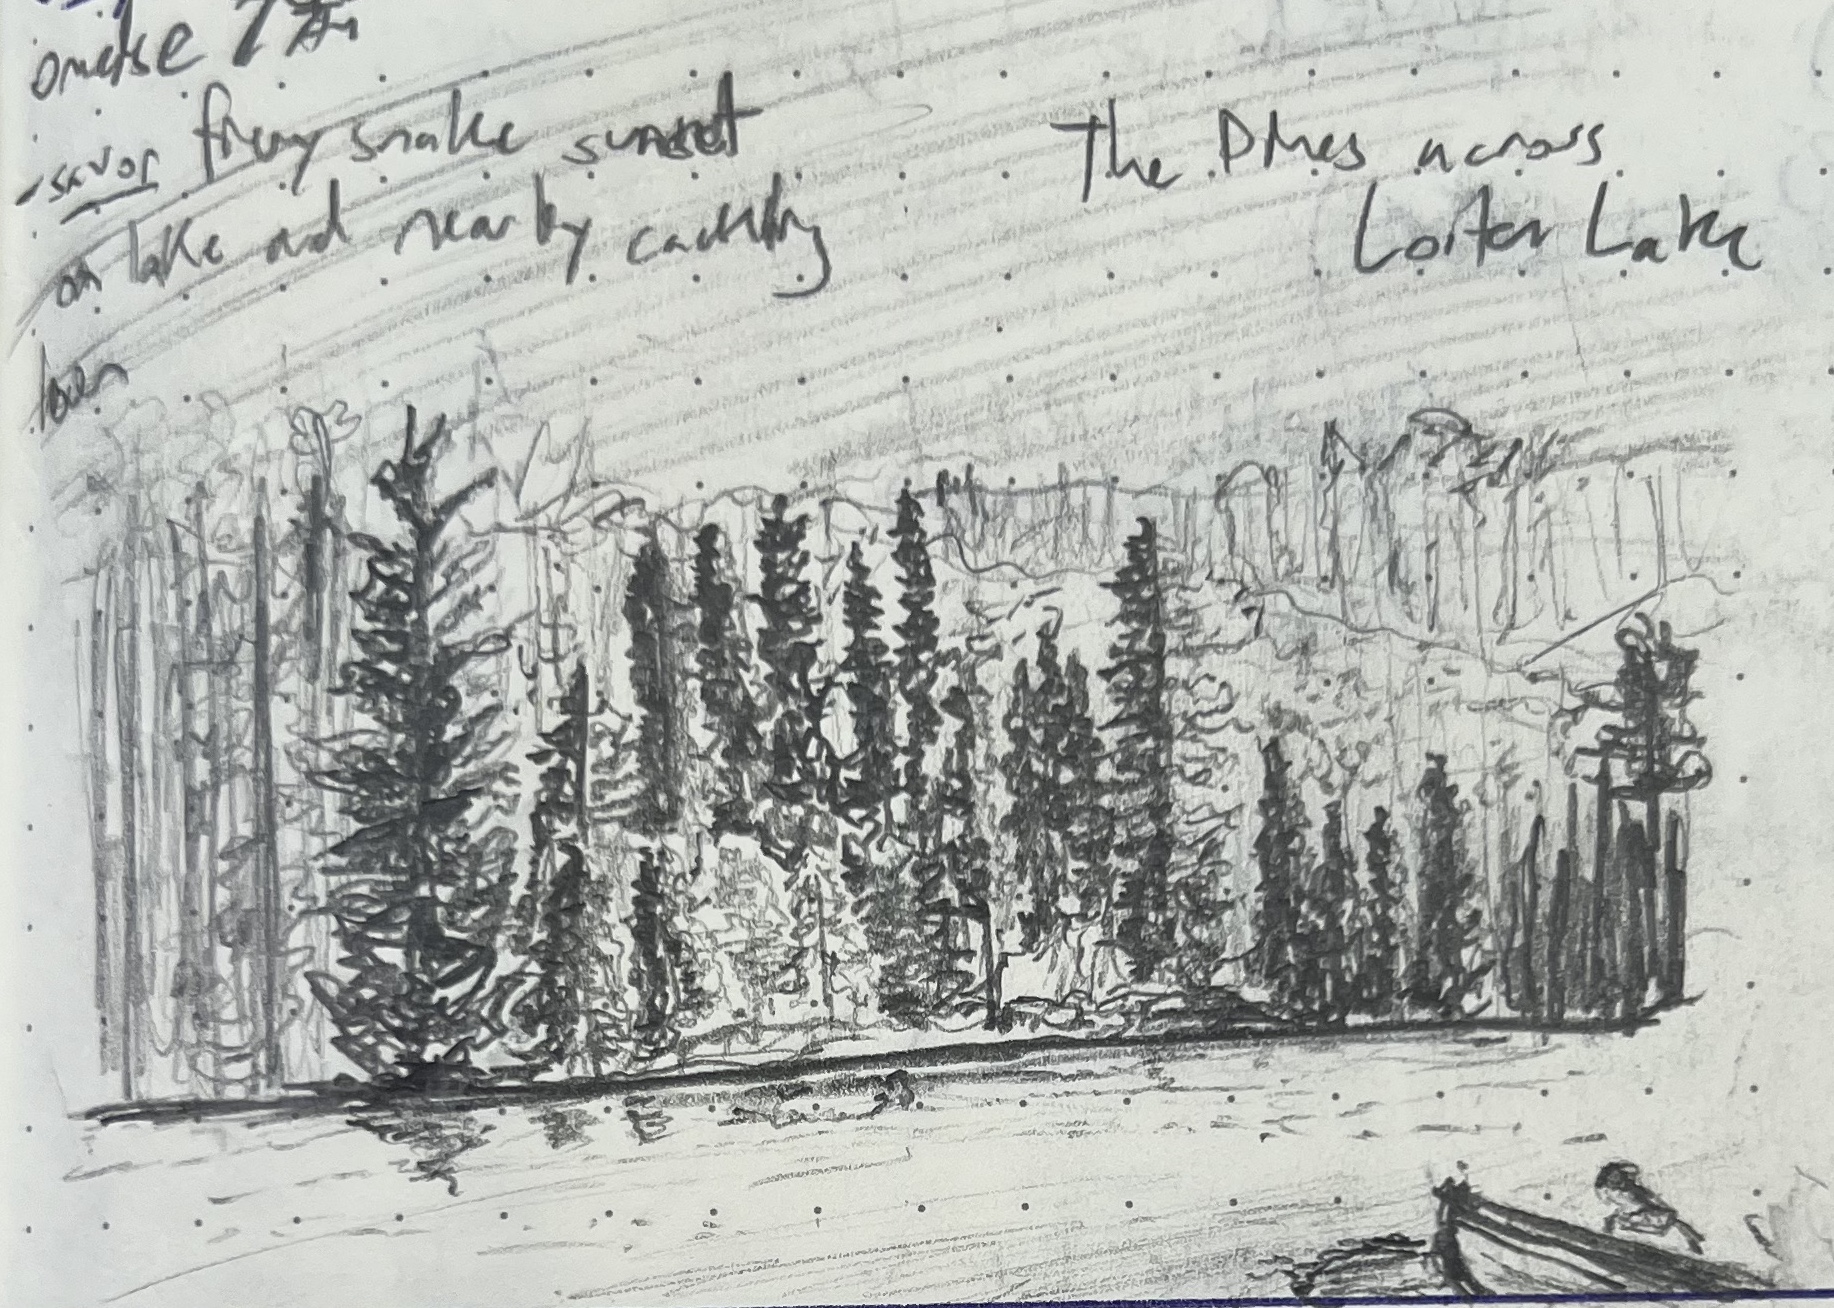 - savor fiery snake sunset
on lake and nearby cackling
loon
The Pines across
Loiter Lake